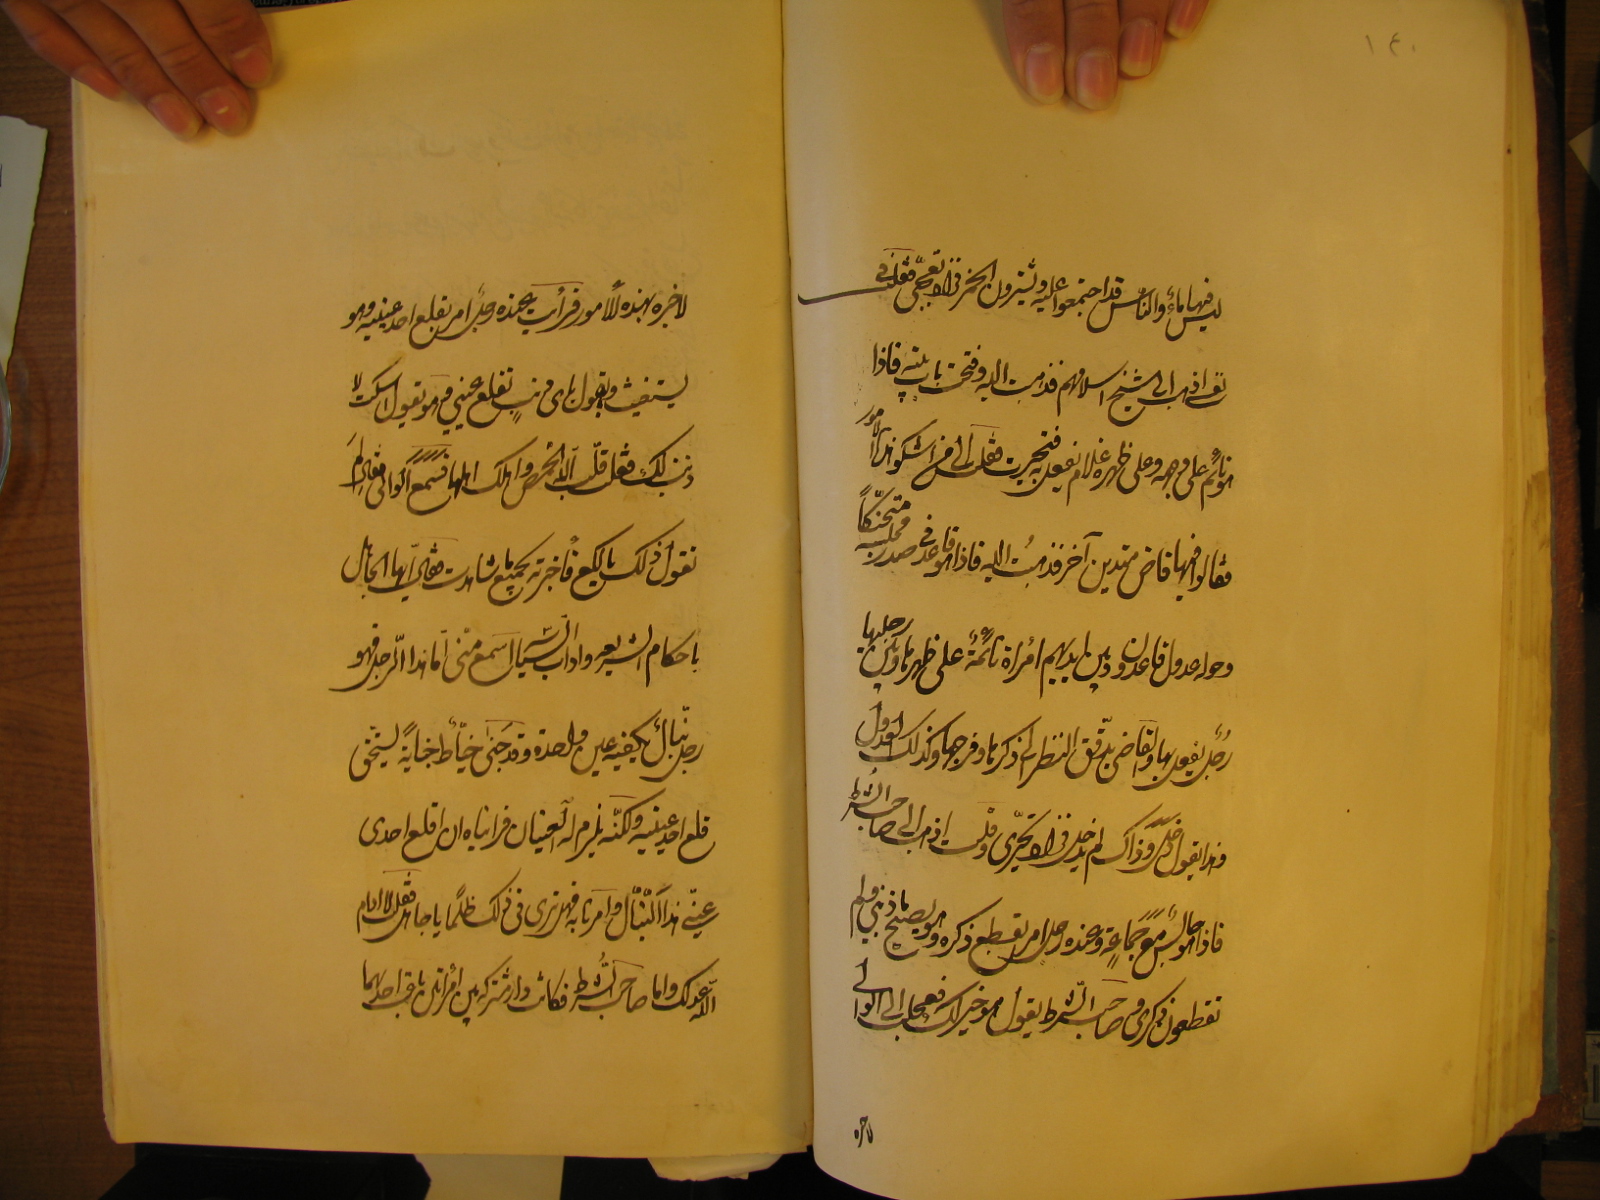 ١٤٠
ليس فيها ماء والناس قد اجتمعوا عليه ويشترون الخمر فزاد تعجبي فقلت في
نفسي اذهب الى شيخ اسلامهم فذهبت اليه وفتحت باب بيته فاذا
هو نائم على وجهه وعلى ظهره غلام يفعل به فتحيرت فقلت الى من اشكو هذا الامور
فقالوا فيها قاض متدين آخر فذهبت اليه فاذا هو قاعد في صدر مجلسه متحنكاً
وحوله عدول قاعدون وبين ايديهم امرأة نائمة على ظهرها وبين رجليها
رجل يفعل بها والقاضي يدقق النظر الى ذكرها وفرجها وكذلك العدول
وهذا يقول دخل وذاك لم يدخل فزاد تحيّري وقلت اذهب الى صاحب الشرط
فاذا هو جالس مع جماعة وعنده رجل امر بقطع ذكره وهو يصيح ما ذنبي ولم
تقطعون ذكري وصاحب الشرط يقول هو خير لك فعجلت الى الوالي
لاخبره
لاخبره بهذه الامور فرأيت عنده رجل امر بقلع احد عينيه وهو
يستغيث ويقول باي ذنب تقلع عيني وهو يقول اسكت لا
ذنب لك فقلت قلّب الله الحمص واهلك اهلها فسمع الوالي فقال لم
تقول ذلك يا لكع فاخبرته بجميع ما شاهدت فقال ايها الجاهل
باحكام الشريعة واداب السياسة اسمع منّي امّا هذا الرجل فهو
رجل نبّال يكفيه عين واحدة وقد جنى خيّاط جناية يستحق
قلع احد عينيه ولكنّه يلزم له العينان فرايناه ان اقلع احدى
عيني هذا النبّال وامرنا به فهل ترى في ذلك ظلما يا جاهل فقلت لا ادام
الله عدلك واما صاحب الشرط فكانت دار مشتركة بين امرأتين باع احديهما